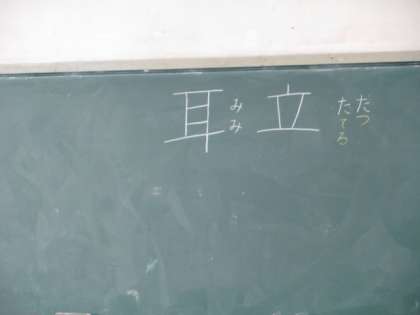 耳 みみ
立 たつ
たてる